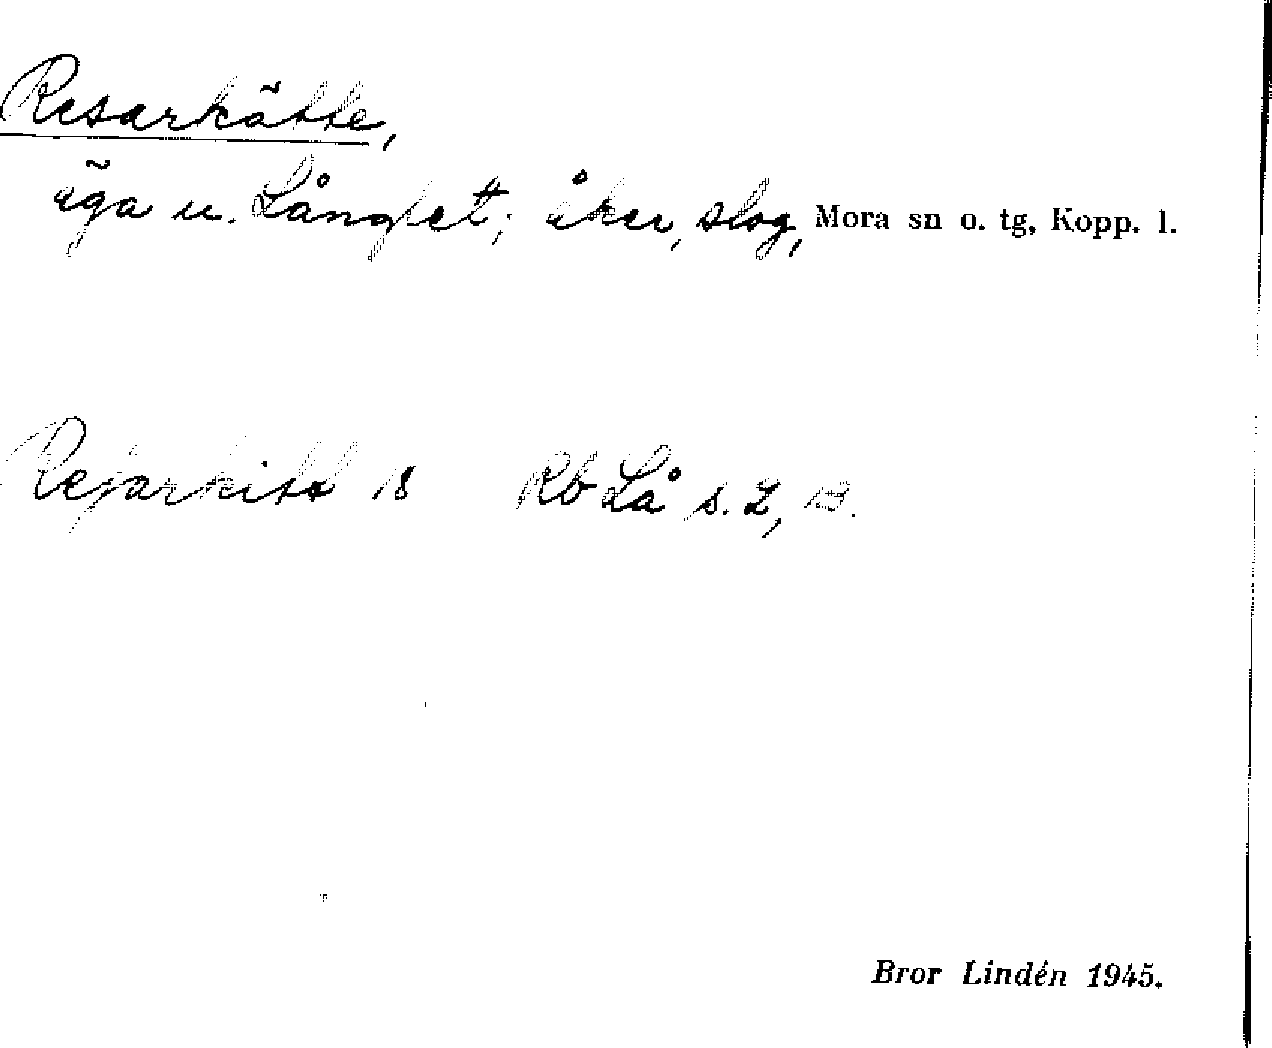 Resarkätte,
äga u. Långlet; åker, slog, Mora sn o. tg, Kopp. l.
Rejarkitt 18 Rb Lå s. 2, 13.
Bror Lindén 1945.